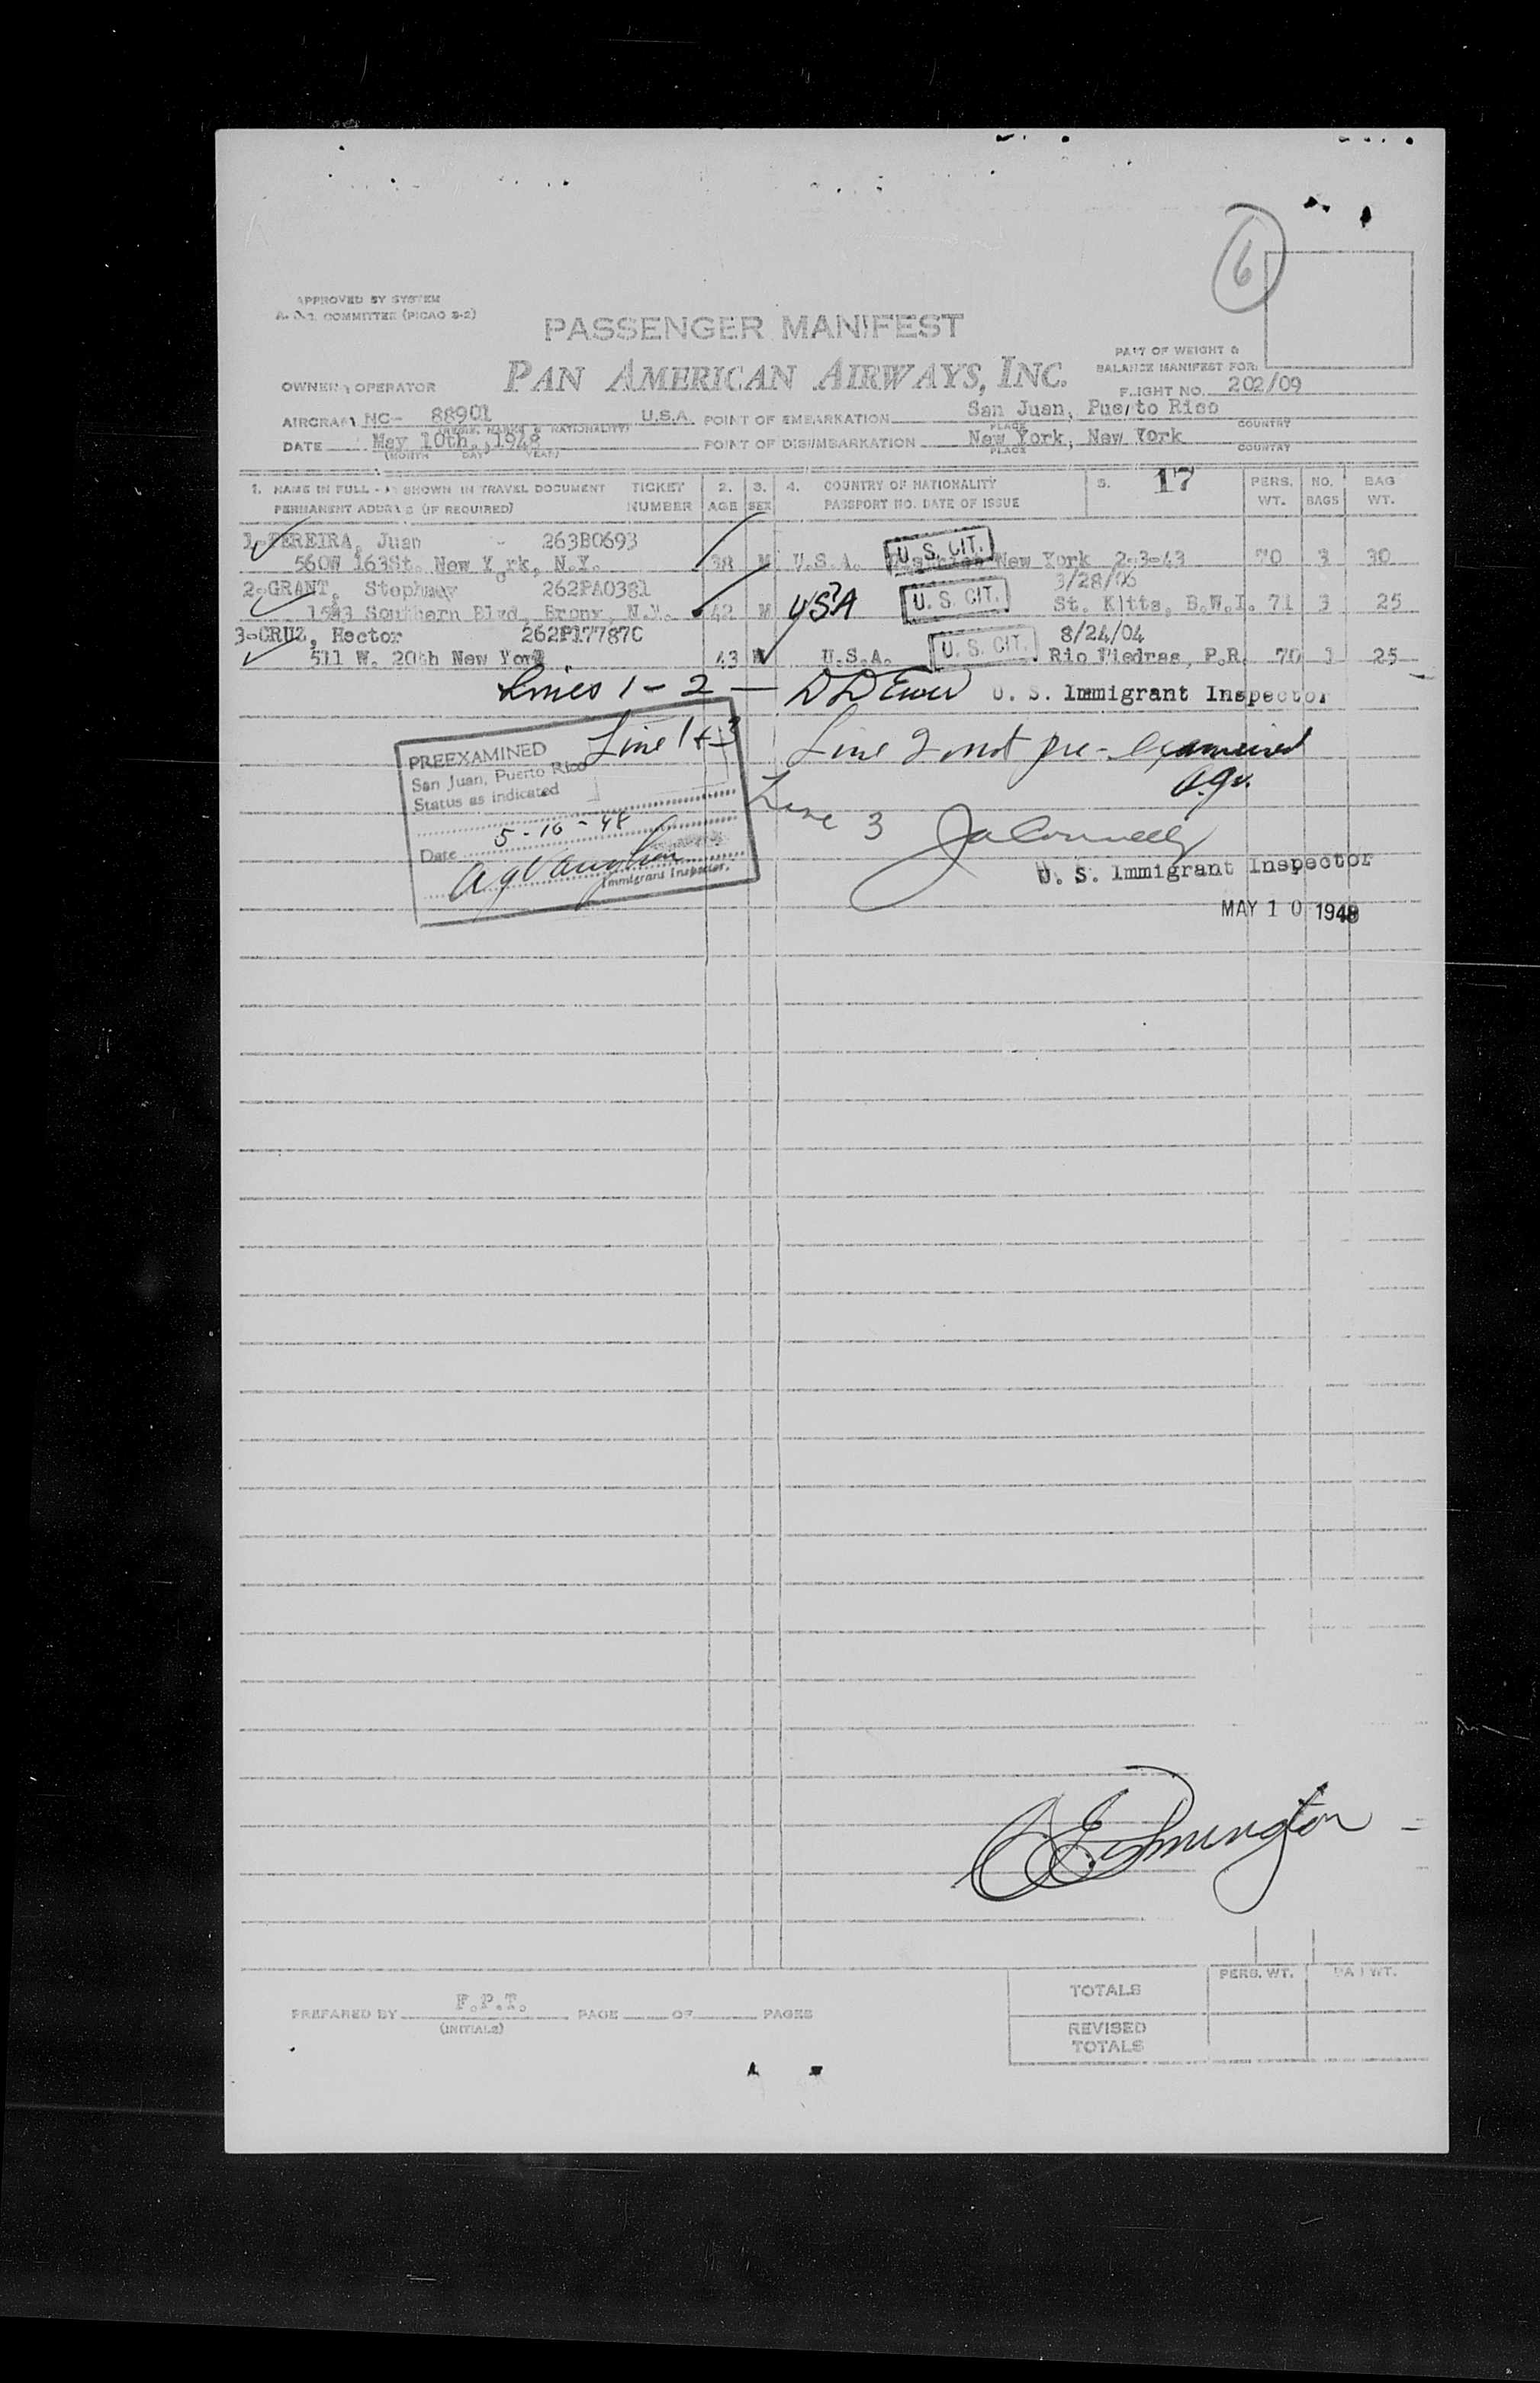 6
APPROVED BY SYSTEM
COMMITTEE (PICAO S-2)
PASSENGER MANIFEST
PAN AMERICAN AIRWAYS, INC.
PART OF WEIGHT &
BALANCE MANIFEST FOR:
OWNER, OPERATOR
FLIGHT NO. 202/09
AIRCRAFT NC- 88901 U.S.A. POINT OF EMBARKATION San Juan, Puerto Rico
MARKS & NATIONALITY) PLACE COUNTRY
DATE May 10th.,1948 POINT OF DISEMBARKATION New York, New York
(MONTH DAY YEAR) PLACE COUNTRY
1. NAME IN FULL - AS SHOWN IN TRAVEL DOCUMENT TICKET 2. 3. 4. COUNTRY OF NATIONALITY 5. 17 PERS. NO. BAG
PERMANENT ADDRESS (IF REQUIRED) NUMBER AGE SEX PASSPORT NO. DATE OF ISSUE WT. BAGS WT.
1-PEREIRA, Juan - 263B0693
560W 163St. New York, N.Y. 38 M U.S.A. U. S. CIT. New York 2-3-43 70 3 30
2-GRANT, 262PA0381 3/28/06
1543 Southern Blvd, Bronx, N.Y. 42 M USA U. S. CIT. St. Kitts, B.W.I. 71 3 25
3-CRUZ, Hector 262P17787C 8/24/04
511 W. 20th New York 43 M U.S.A. U. S. CIT. Rio Piedras, P.R. 70 3 25
Lines 1-2 - U. S. Immigrant Inspector
PREEXAMINED Line 1 + 3
San Juan, Puerto Rico
Status as indicated
Line 2 not pre-examined
a.g.v.
Date 5-10-48
A g Vaughan
Immigrant Inspector.
Line 3 JaConnelly
U. S. Immigrant Inspector
MAY 10 1948
PREPARED BY F.P.T. PAGE OF PAGES
(INITIALS)
TOTALS PERS. WT. BAG WT.
REVISED
TOTALS